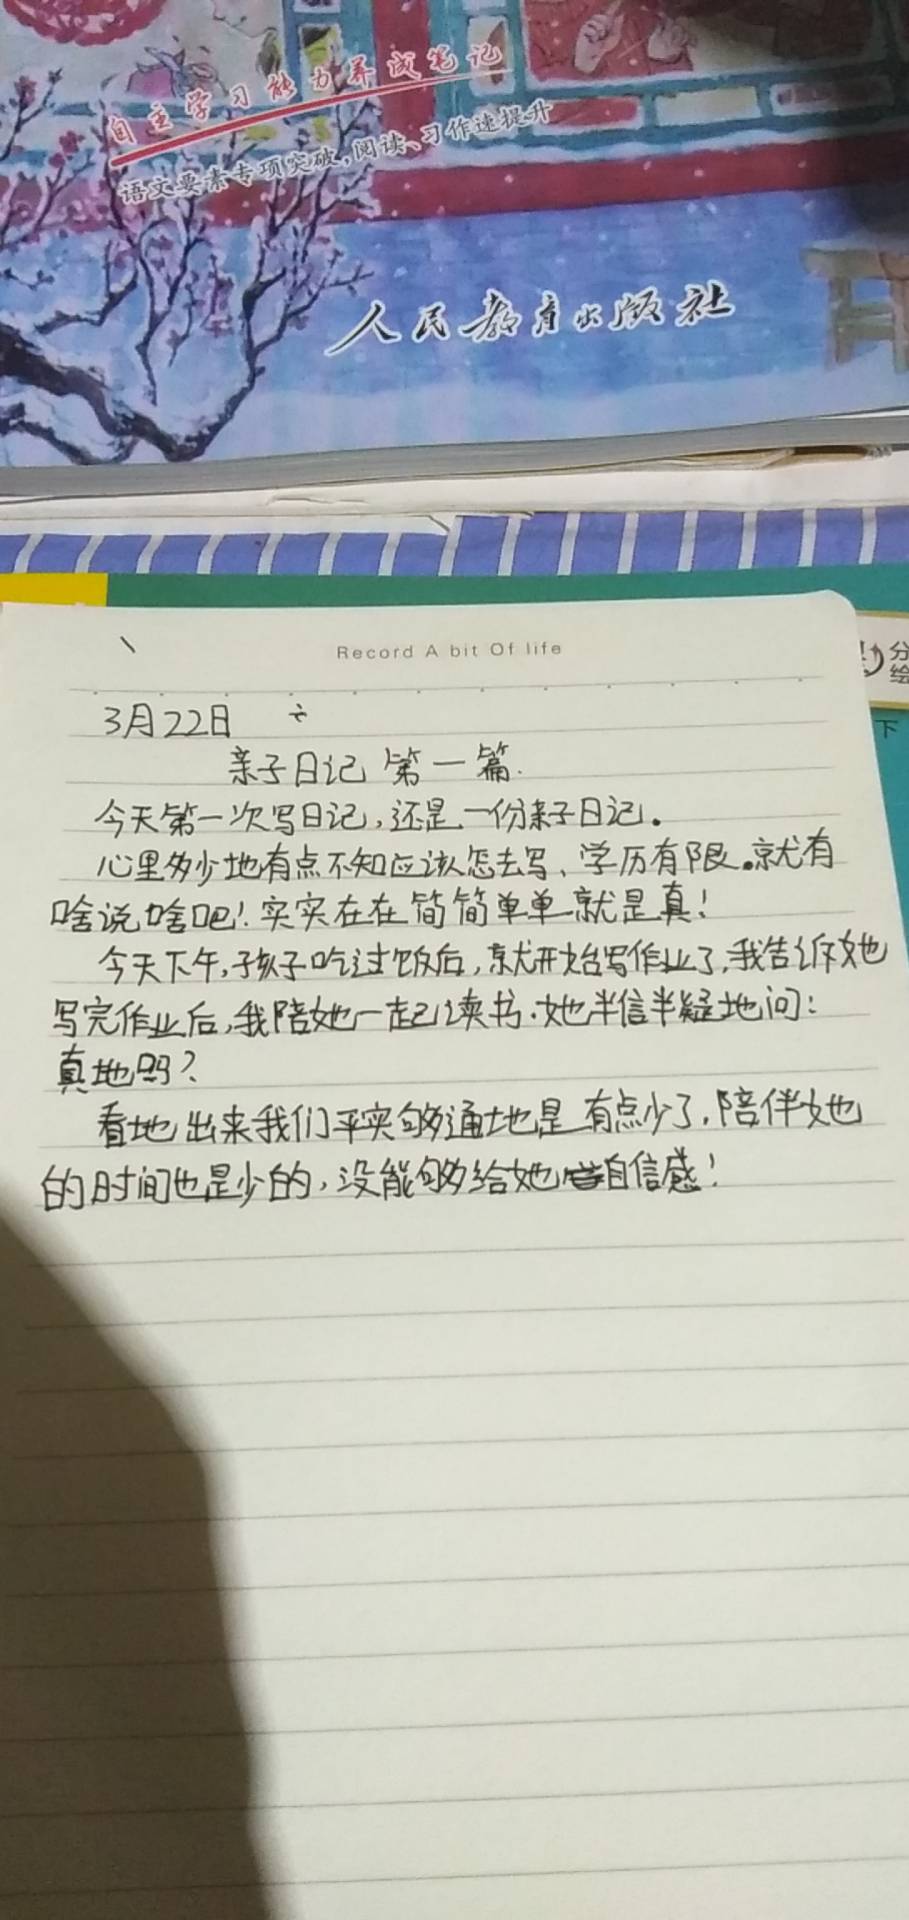 自主学习能力养成笔记
语文要素专项突破,阅读、习作速提升
人民教育出版社
Record A bit Of life
分
绘
下
3月22日 六
亲子日记 第一篇.
今天第一次写日记,还是一份亲子日记。
心里多少地有点不知应该怎去写、学历有限。就有
啥说啥吧!实实在在简简单单就是真!
今天下午,孩子吃过饭后,就开始写作业了,我告诉她
写完作业后,我陪她一起读书.她半信半疑地问:
真地吗?
看地出来我们平实够通地是有点少了,陪伴她
的时间也是少的,没能够给她自信感!